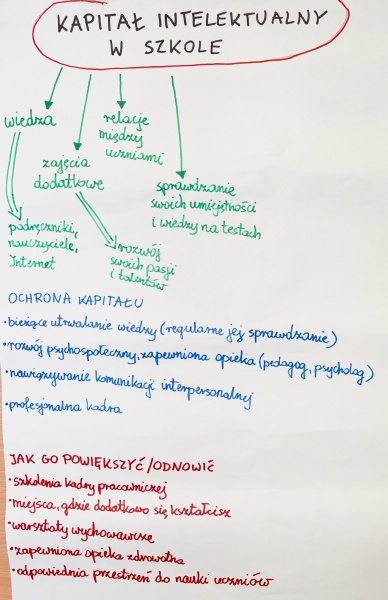 KAPITAŁ INTELEKTUALNY
W SZKOLE
wiedza
zajęcia
dodatkowe
relacje
między
uczniami
sprawdzanie
swoich umiejętności
i wiedzy na testach
podręczniki,
nauczyciele,
Internet
rozwój
swoich pasji
i talentów
OCHRONA KAPITAŁU
•bieżące utrwalanie wiedzy (regularne jej sprawdzanie)
•rozwój psychospołeczny, zapewniona opieka (pedagog, psycholog)
•nawiązywanie komunikacji interpersonalnej
•profesjonalna kadra
JAK GO POWIĘKSZYĆ/ODNOWIĆ
•szkolenia kadry pracowniczej
•miejsca, gdzie dodatkowo się kształcisz
•warsztaty wychowawcze
•zapewniona opieka zdrowotna
•odpowiednia przestrzeń do nauki uczniów